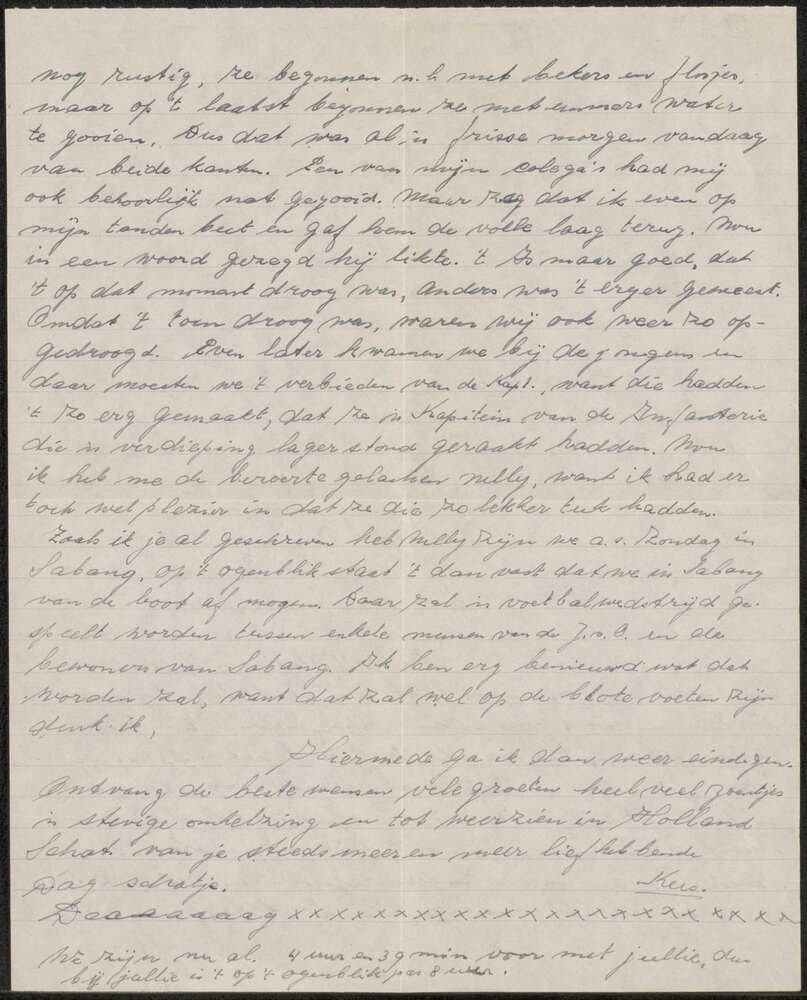 nog rustig, ze begonnen n.l. met bekers en flesjes,
maar op 't laatst begonnen ze met emmers water
te gooien. Dus dat was al 'n frisse morgen vandaag
van beide kanten. Een van mijn colega's had mij
ook behoorlijk nat gegooid. Maar zeg dat ik even op
mijn tanden beet en gaf hem de volle laag terug. Nou
in een woord gezegd hij likte. 't Is maar goed, dat
't op dat moment droog was, anders was 't erger geweest.
Omdat 't toen droog was, waren wij ook weer zo op-
gedroogd. Even later kwamen we bij de jongens en
daar moesten we 't verbieden van de Kapt., want die hadden
't zo erg gemaakt, dat ze 'n Kapitein van de Infanterie
die 'n verdieping lager stond geraakt hadden. Nou
ik heb me de beroerte gelachen Nelly, want ik had er
toch wel plezier in dat ze die zo lekker tuk hadden.
Zoals ik je al geschreven heb Nelly zijn we a.s. Zondag in
Sabang, op 't ogenblik staat 't dan vast dat we in Sabang
van de boot af mogen. Daar zal 'n voetbalwedstrijd ge-
speelt worden tussen enkele mensen van de J.v.O. en de
bewoners van Sabang. Ik ben erg benieuwd wat dat
worden zal, want dat zal wel op de blote voeten zijn
denk ik,
Hiermede ga ik dan weer eindigen.
Ontvang de beste wensen vele groeten heel veel zoentjes
'n stevige omhelzing en tot weerziens in Holland
Schat van je steeds meer en meer liefhebbende
Dag schatje. Kees.
Daaaaaaag x x x x x x x x x x x x x x x x x x x x x x x x
We zijn nu al. 4 uur en 39 min voor met jullie, dus
bij jullie is 't op 't ogenblik pas 8 uur.